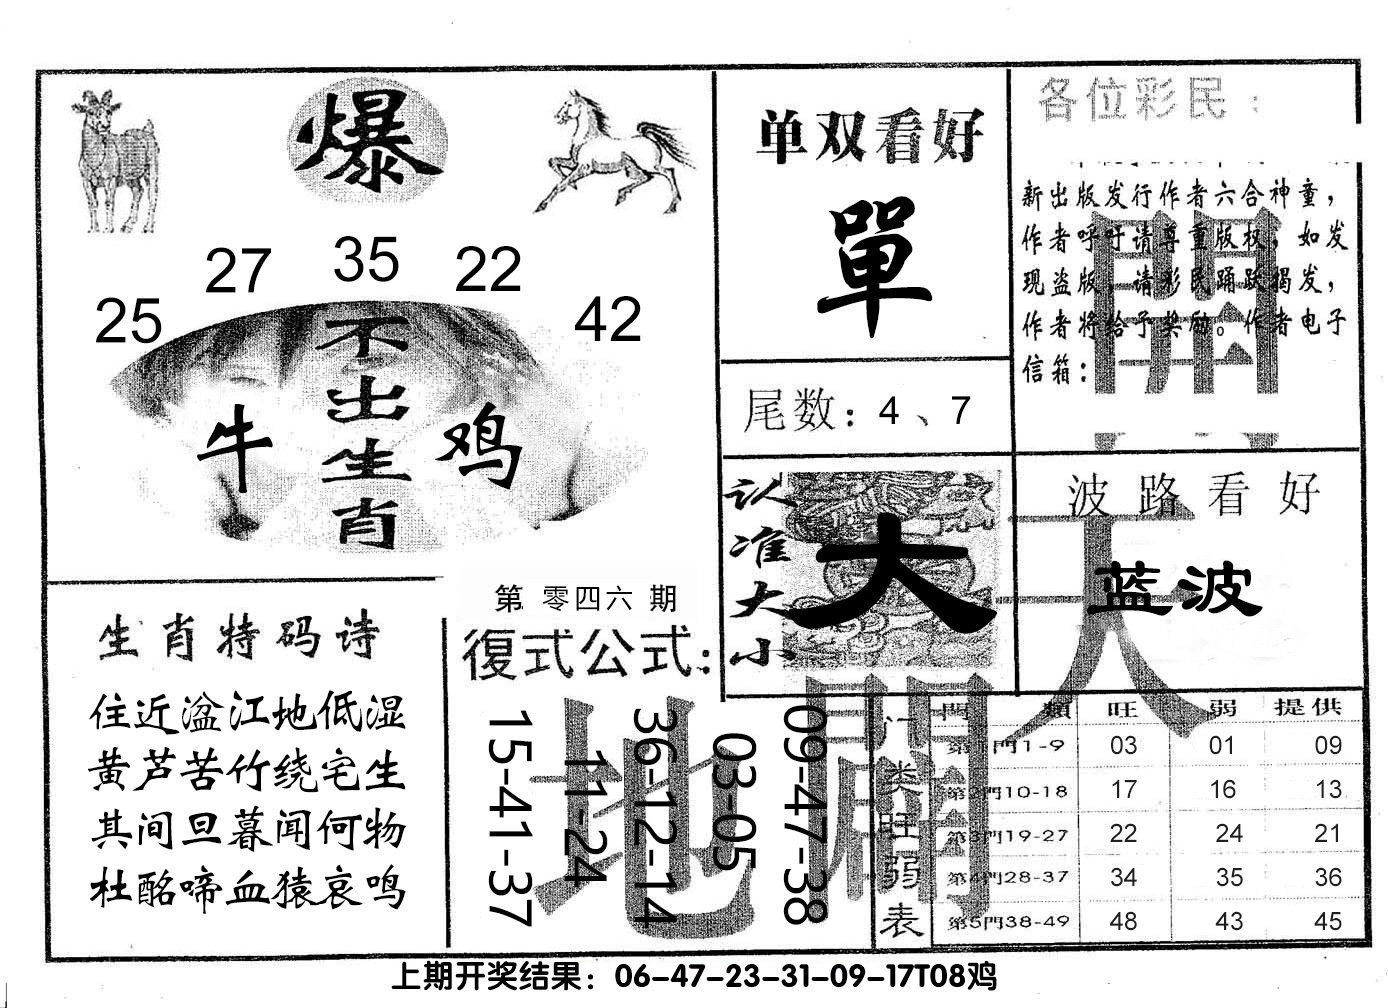 爆
25 27 35 22 42
不出生肖
牛 鸡
单双看好
單
各位彩民：
新出版发行作者六合神童，
作者呼吁请尊重版权，如发
现盗版，请彩民踊跃揭发，
作者将给予奖励。作者电子
信箱：
尾数：4、7
认准大小
大
波路看好
蓝波
生肖特码诗
住近湓江地低湿
黄芦苦竹绕宅生
其间旦暮闻何物
杜酩啼血猿哀鸣
第 零四六 期
復式公式：
15-41-37
11-24
36-12-14
03-05
09-47-38
開天
地開
门类旺弱表
門類 旺 弱 提供
第1門1-9 03 01 09
第2門10-18 17 16 13
第3門19-27 22 24 21
第4門28-37 34 35 36
第5門38-49 48 43 45
上期开奖结果：06-47-23-31-09-17T08鸡